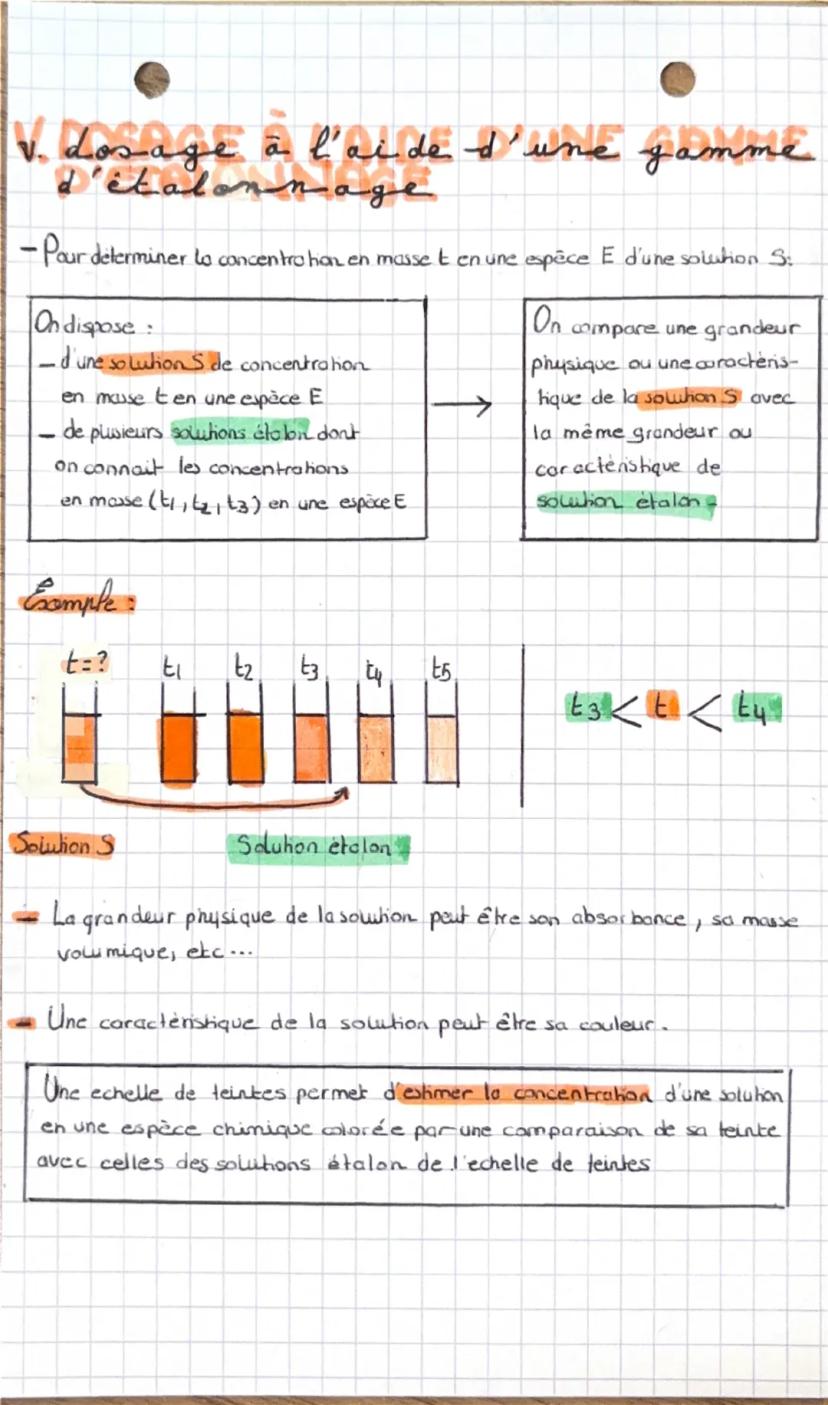 V. dosage à l'aide d'une gamme
d'étalonnage
- Pour déterminer la concentration en masse t en une espèce E d'une solution S.
On dispose :
- d'une solution S de concentration
en masse t en une espèce E
- de plusieurs solutions étalon dont
on connait les concentrations
en masse (t1, t2, t3) en une espèce E
On compare une grandeur
physique ou une caractéris-
tique de la solution S avec
la même grandeur ou
caractéristique de
solution étalon.
Exemple :
t=? t1 t2 t3 t4 t5
t3 < t < t4
Solution S Solution étalon
- La grandeur physique de la solution peut être son absorbance, sa masse
volumique, etc...
- Une caractéristique de la solution peut être sa couleur.
Une echelle de teintes permet d'estimer la concentration d'une solution
en une espèce chimique colorée par une comparaison de sa teinte
avec celles des solutions étalon de l'echelle de teintes